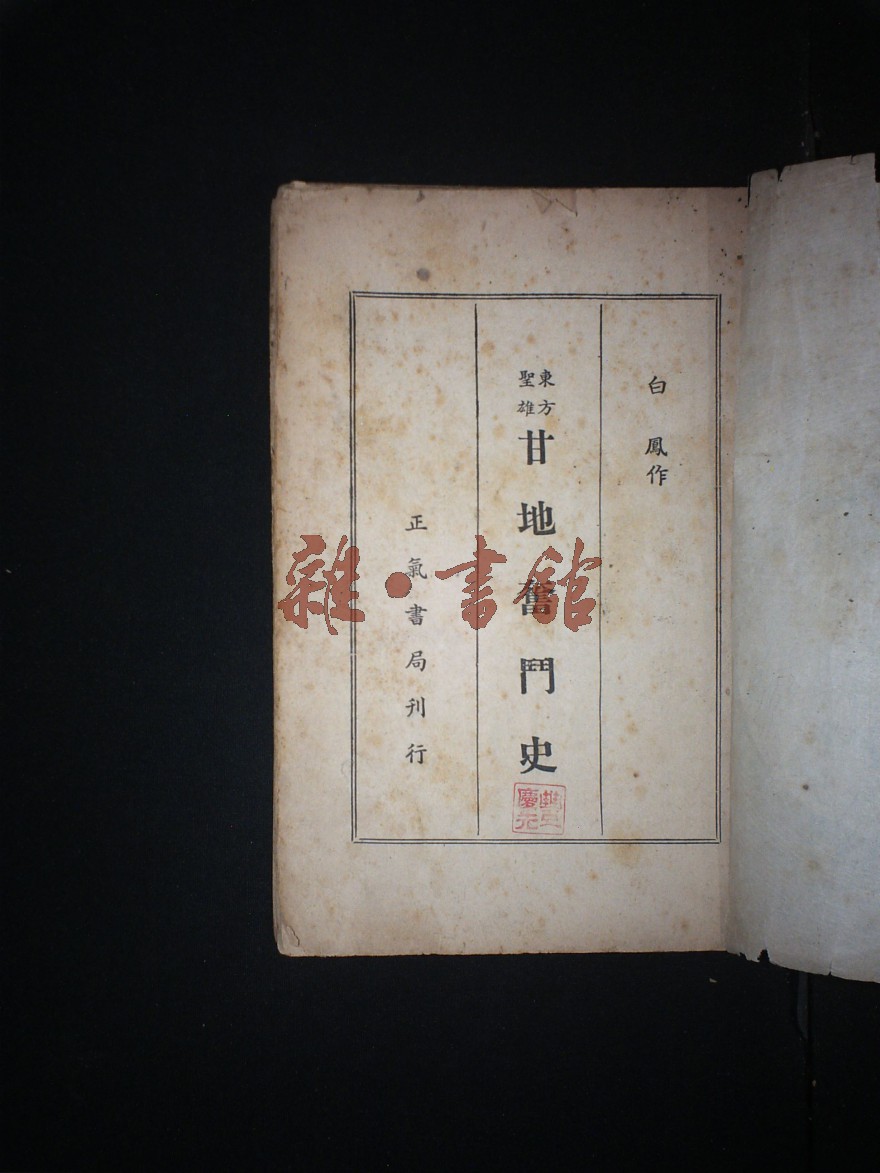 白鳳作
東方
聖雄
甘地奮鬥史
正氣書局刊行
雜·書館